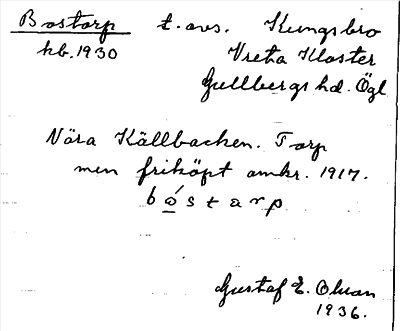 Bostorp t. avs. Kungsbro
kb. 1930 Vreta Kloster
Gullbergs hd. Ögl
Nära Källbacken. Torp
men friköpt omkr. 1917.
bóstarp
Gustaf E. Olson
1936.